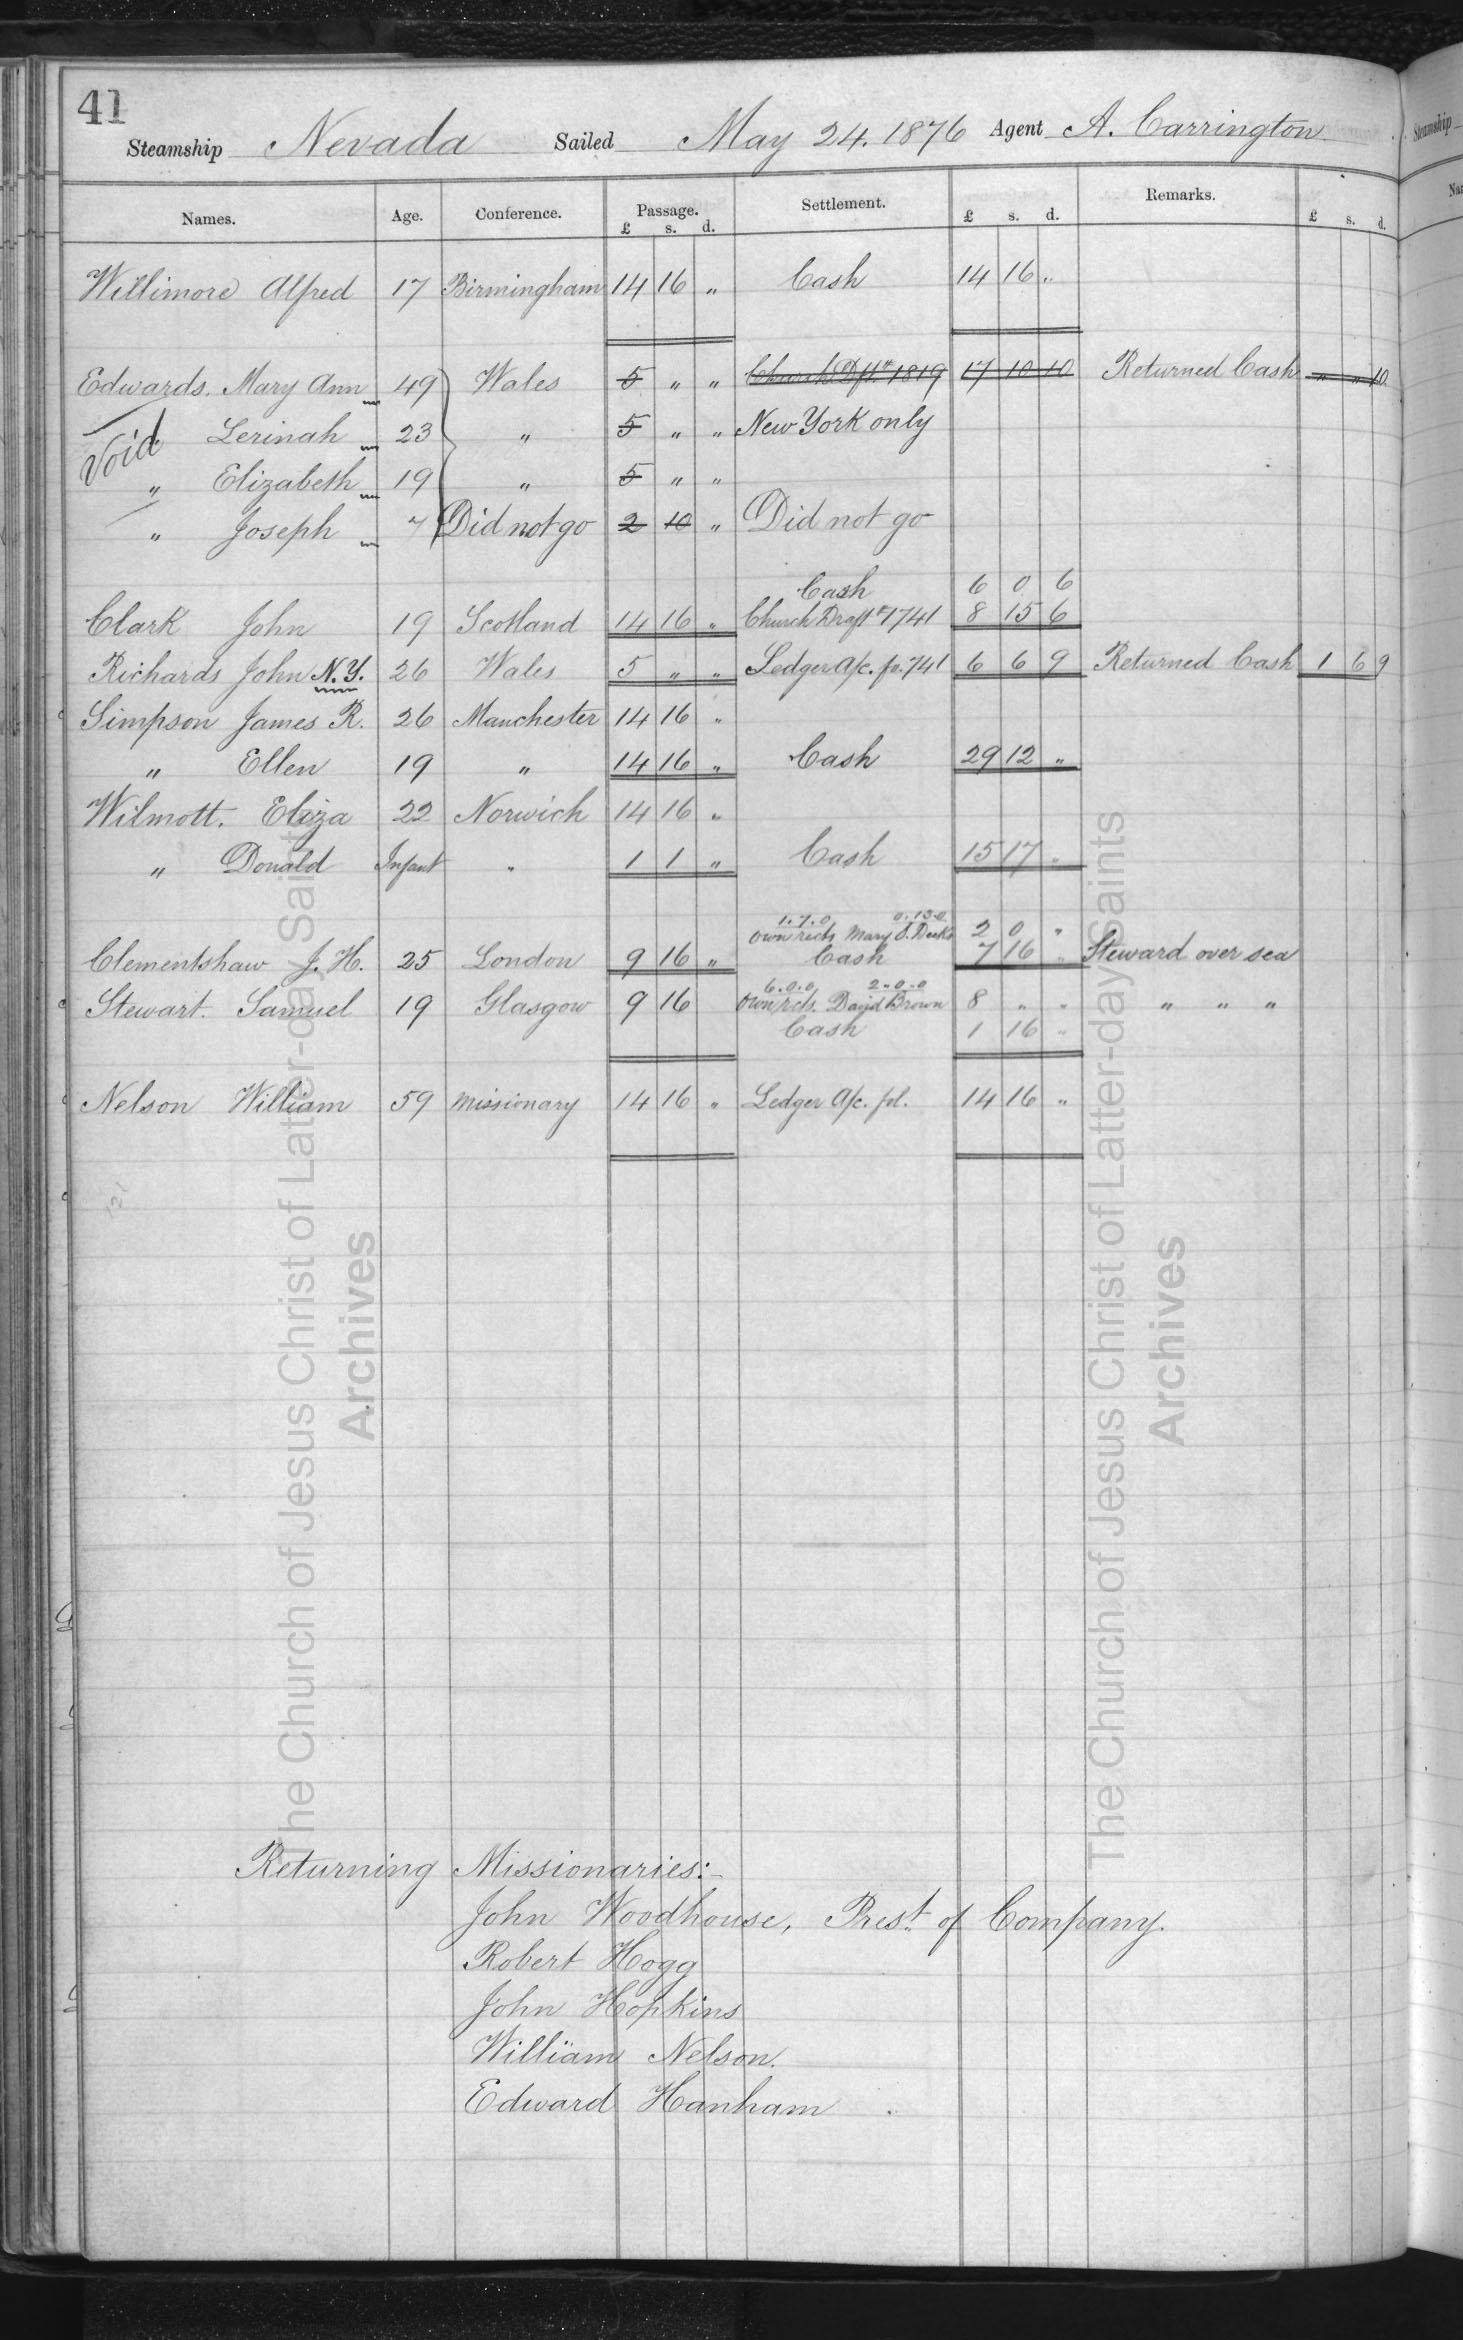 41
Steamship Nevada Sailed May 24. 1876 Agent A. Carrington
Names. Age. Conference. Passage. £ s. d. Settlement. £ s. d. Remarks. £ s. d.
Willimore Alfred 17 Birmingham 14 16 " Cash 14 16 "
Edwards. Mary Ann 49 Wales 5 " " Church Dft # 1819 17 10 10 Returned Cash " " 10
Void " Lerinah 23 " 5 " " New York only
" Elizabeth 19 " 5 " "
" Joseph 7 Did not go 2 10 " Did not go
Cash 6 0 6
Clark John 19 Scotland 14 16 " Church Draft # 1741 8 15 6
Richards John N.Y. 26 Wales 5 " " Ledger a/c. fo. 741 6 6 9 Returned Cash 1 6 9
Simpson James R. 26 Manchester 14 16 "
" Ellen 19 " 14 16 " Cash 29 12 "
Wilmott. Eliza 22 Norwich 14 16 "
" Donald Infant " 1 1 " Cash 15 17 "
1.7.0 0.13.0
own rects Mary S. Deeks 2 0 "
Clementshaw J. H. 25 London 9 16 " Cash 7 16 " Steward over sea
6.0.0 2.0.0
Stewart. Samuel 19 Glasgow 9 16 own rcts. David Brown 8 " " " " "
Cash 1 16 "
Nelson William 59 Missionary 14 16 " Ledger a/c. fol. 14 16 "
Returning Missionaries:-
John Woodhouse, Prest. of Company.
Robert Hogg
John Hopkins
William Nelson.
Edward Hanham
The Church of Jesus Christ of Latter-day Saints
Archives
The Church of Jesus Christ of Latter-day Saints
Archives
Steamship